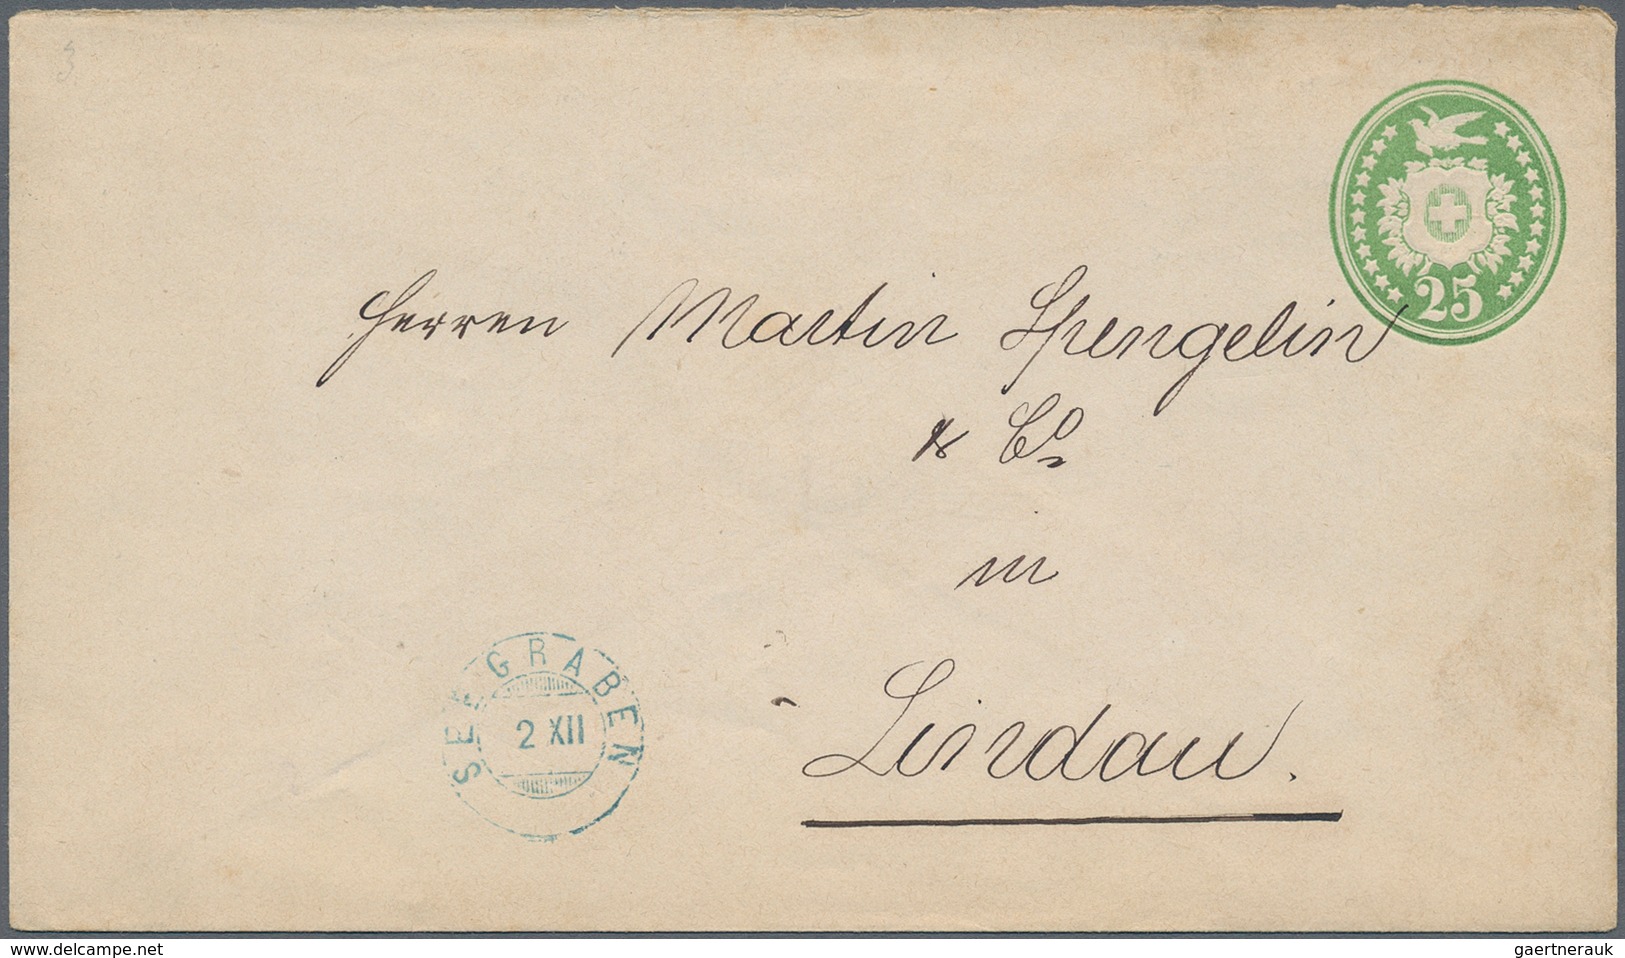 3
25
Herren Martin Spengelin
& Co
in
Lindau.
SEEGRÄBEN
2 XII
Delcampe.net
gaertnerauk